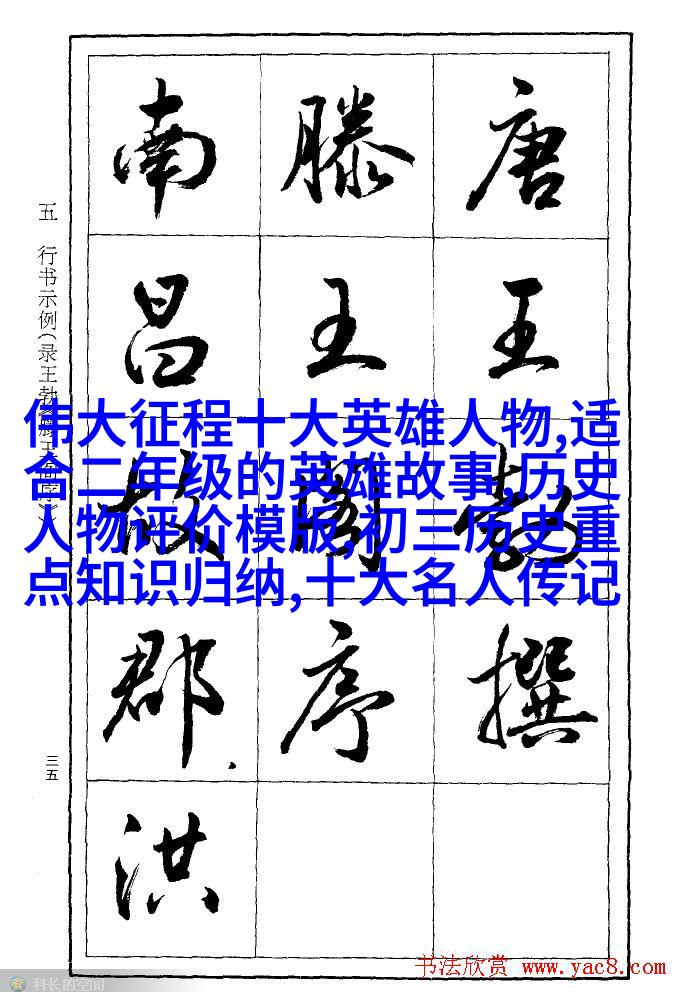 唐
王
勃
撰
滕
王
阁
序
南
昌
故
郡
洪
五 行书示例(录王勃《滕王阁序》)
三五
伟大征程十大英雄人物,适
合二年级的英雄故事,历史
人物评价模版,初三历史重
点知识归纳,十大名人传记
书法欣赏 www.yac8.com
科长的空间